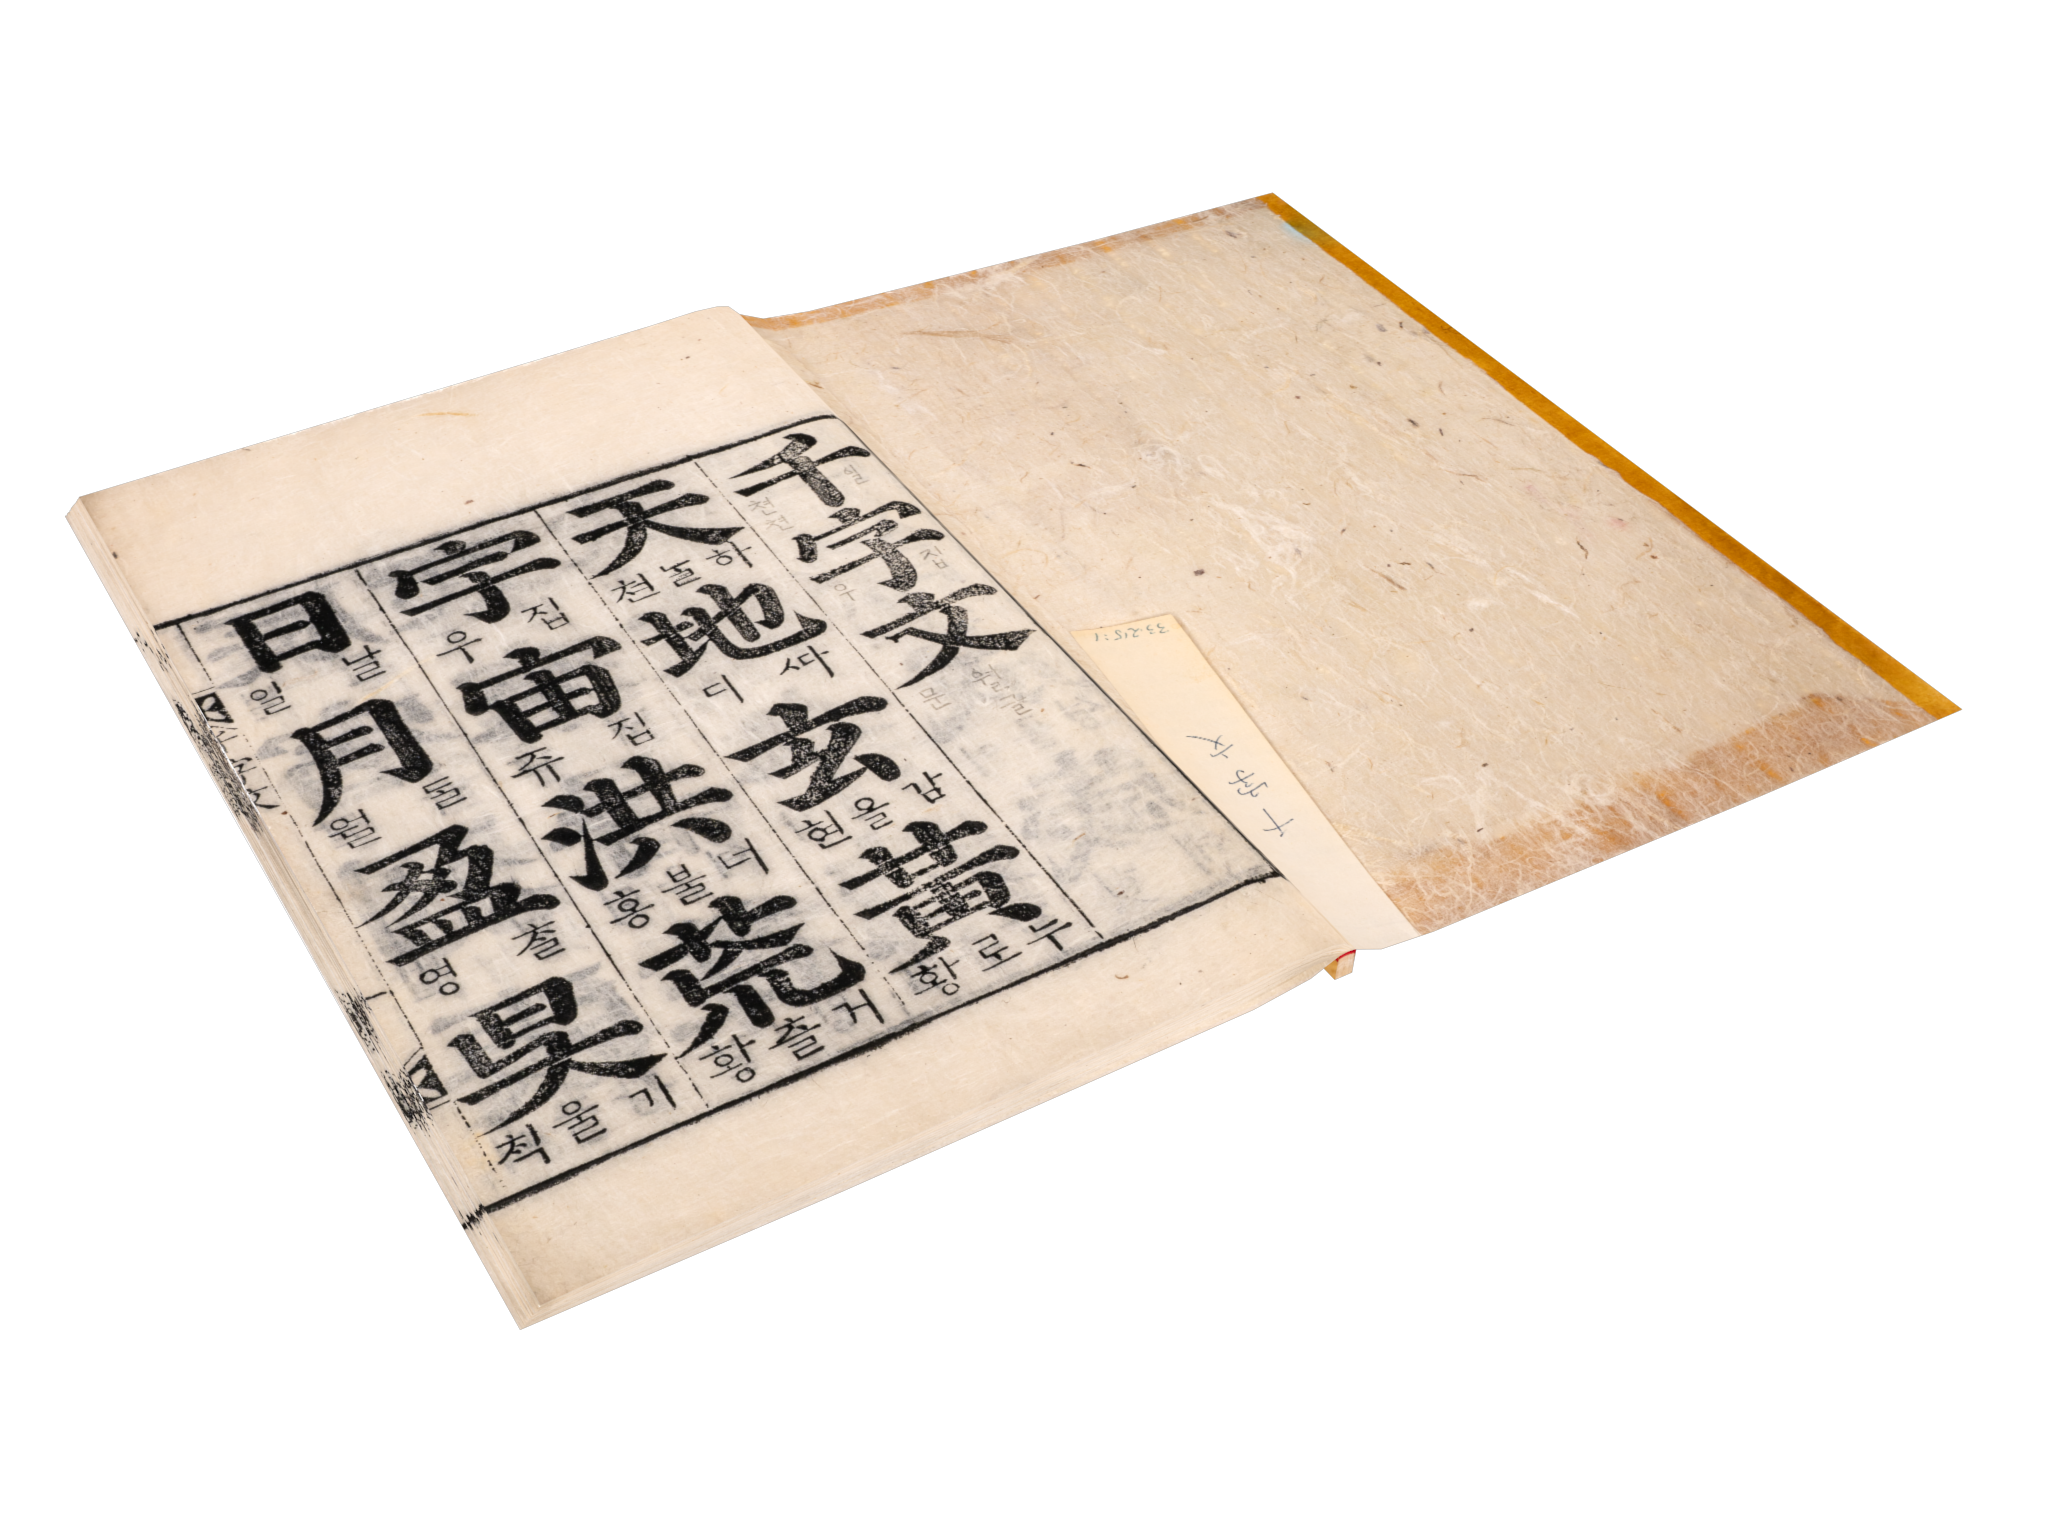 千字文
天 하ᄂᆞᆯ 천
地 ᄯᅡ 디
玄 감을 현
黃 누로 황
宇 집 우
宙 집 쥬
洪 너블 홍
荒 거츨 황
日 날 일
月 ᄃᆞᆯ 월
盈 ᄎᆞᆯ 영
昃 기울 칙
33.215:1
千字文